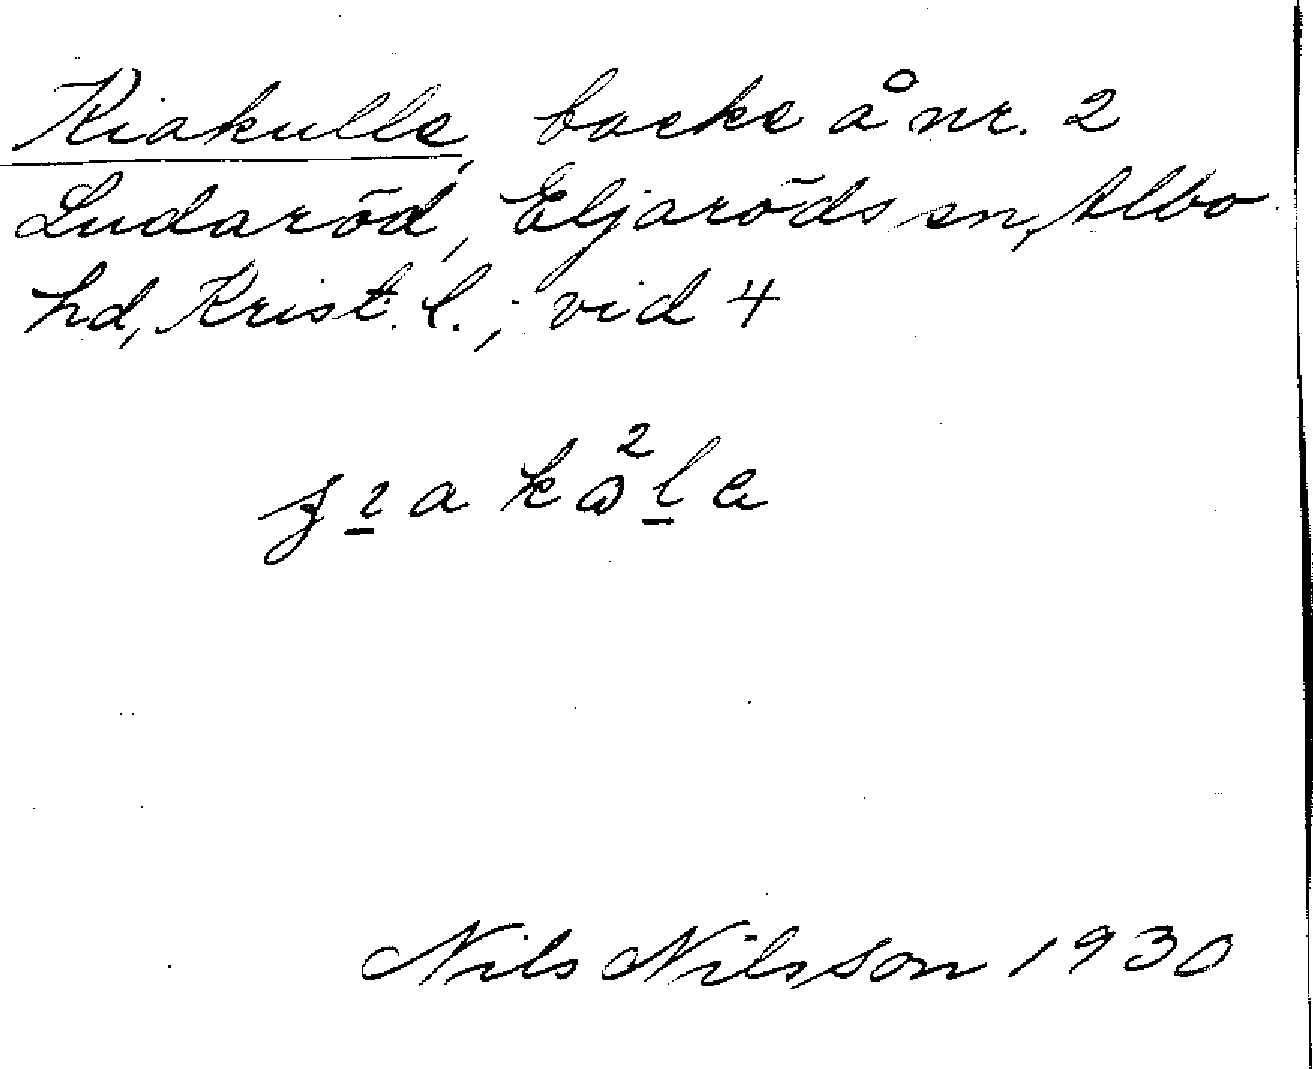 Kiakulle, backe å nr. 2
Ludaröd, Eljaröds sn, Albo
hd, Krist. l.; vid 4
Nils Nilsson 1930